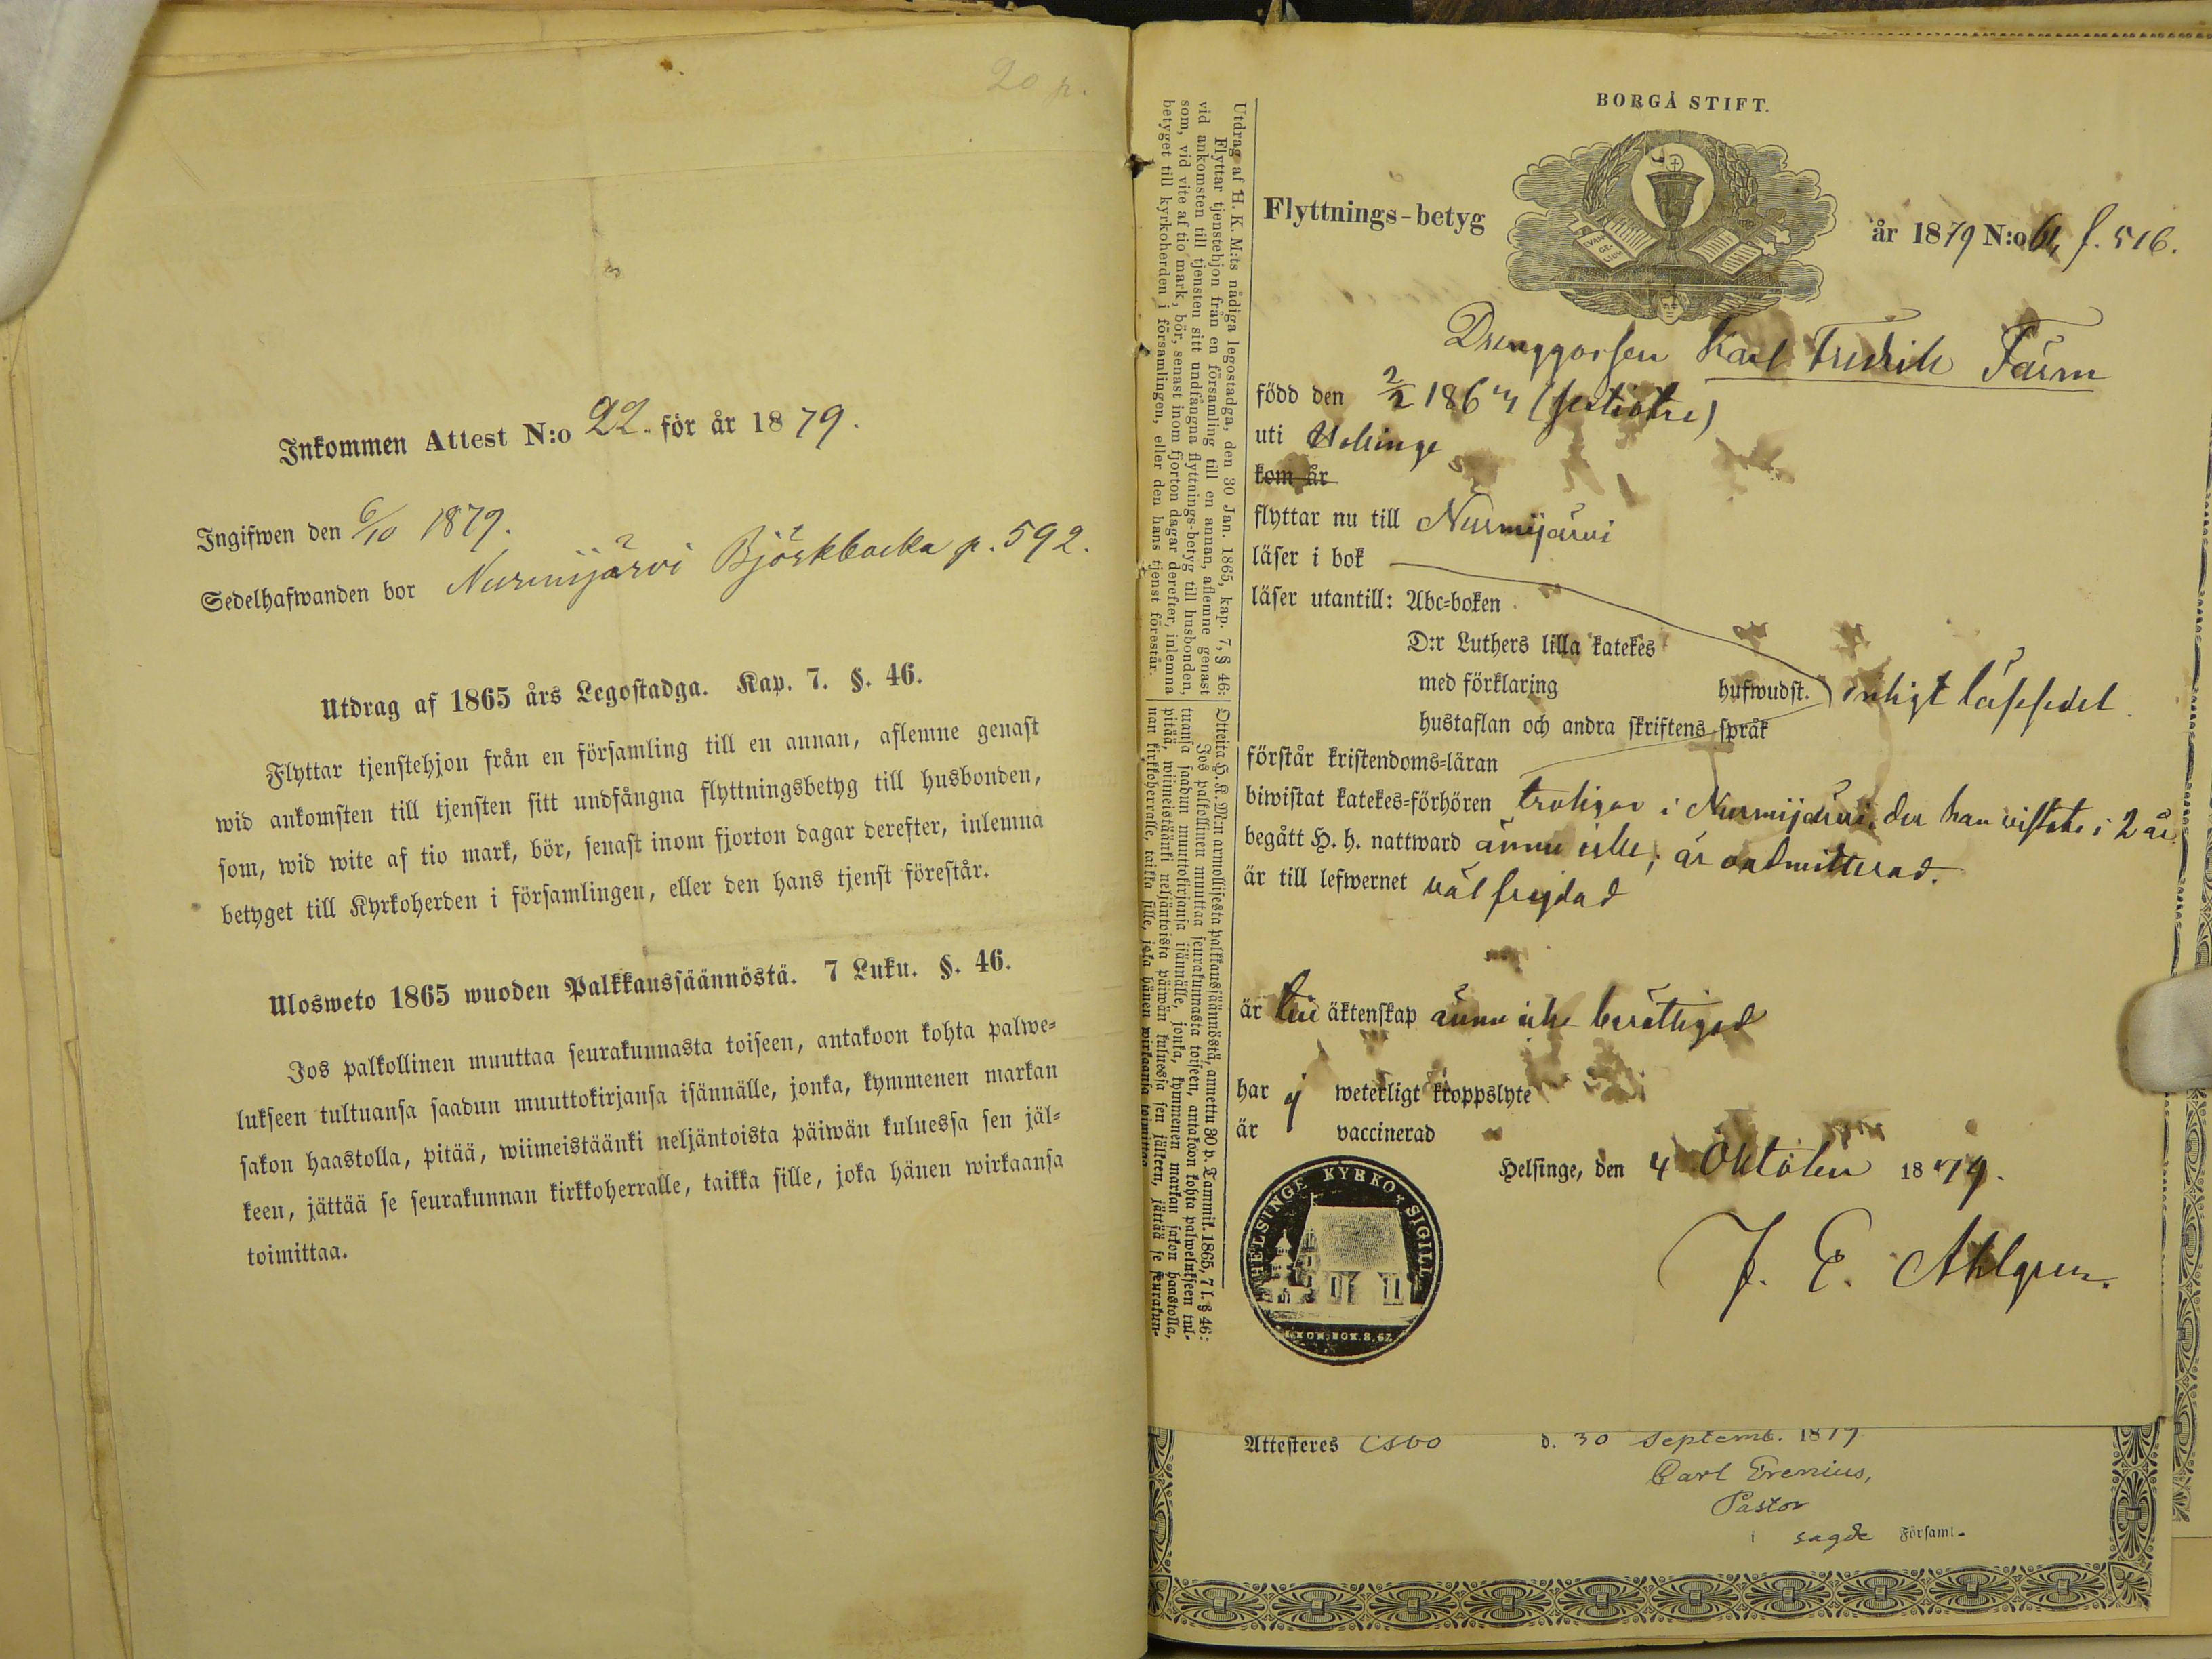 20 p.
Inkommen Attest N:o 22. för år 1879.
Ingifwen den 6/10 1879.
Sedelhafwanden bor Nurmijärvi Björkbacka p. 592.
Utdrag af 1865 års Legostadga. Kap. 7. §. 46.
Flyttar tjenstehjon från en församling till en annan, aflemne genast
wid ankomsten till tjensten sitt undfångna flyttningsbetyg till husbonden,
som, wid wite af tio mark, bör, senast inom fjorton dagar derefter, inlemna
betyget till Kyrkoherden i församlingen, eller den hans tjenst förestår.
Ulosweto 1865 wuoden Palkkaussäännöstä. 7 Luku. §. 46.
Jos palkollinen muuttaa seurakunnasta toiseen, antakoon kohta palwe-
lukseen tultuansa saadun muuttokirjansa isännälle, jonka, kymmenen markan
sakon haastolla, pitää, wiimeistäänki neljäntoista päiwän kuluessa sen jäl-
keen, jättää se seurakunnan kirkkoherralle, taikka sille, joka hänen wirkaansa
toimittaa.
Utdrag af H. K. M:ts nådiga legostadga, den 30 Jan. 1865, kap. 7, § 46:
Flyttar tjenstehjon från en församling till en annan, aflemne genast
vid ankomsten till tjensten sitt undfångna flyttnings-betyg till husbonden,
som, vid vite af tio mark, bör, senast inom fjorton dagar derefter, inlemna
betyget till kyrkoherden i församlingen, eller den hans tjenst förestår.
Otteita H. K. M:n armollisesta palkkaussäännöstä, annettu 30 p. Tammik. 1865, 7 l. § 46:
Jos palkollinen muuttaa seurakunnasta toiseen, antakoon kohta palwelukseen tul-
tuansa saadun muuttokirjansa isännälle, jonka, kymmenen markan sakon haastolla,
pitää, wiimeistäänki neljäntoista päiwän kuluessa sen jälkeen, jättää se seurakun-
nan kirkkoherralle, taikka sille, joka hänen wirkaansa toimittaa.
BORGÅ STIFT.
EVAN-
GE-
LIUM
Flyttnings-betyg
år 1879 N:o 61, f. 516.
Drenggossen Karl Fredrik Färm
född den 2/2 1864
uti Helsinge
kom år
flyttar nu till Nurmijärvi
läser i bok
läser utantill: Abc-boken
D:r Luthers lilla katekes
med förklaring hufwudst. enligt lässedel.
hustaflan och andra skriftens språk
förstår kristendoms-läran
biwistat katekes-förhören troligen i Nurmijärvi, der han vistats i 2 år
begått H. h. nattward ännu icke; är oadmitterad.
är till lefwernet väl frejdad
är till äktenskap ännu icke berättigad
har ej weterligt kroppslyte
är vaccinerad
Helsinge, den 4 Oktober 1879.
HELSINGE KYRKO SIGILL
1 KON. BOK. 8. 67.
J. E. Ahlgren.
Attesteres Esbo d. 30 Septemb. 1879
Carl Frenius,
Pastor
i sagde Församl.